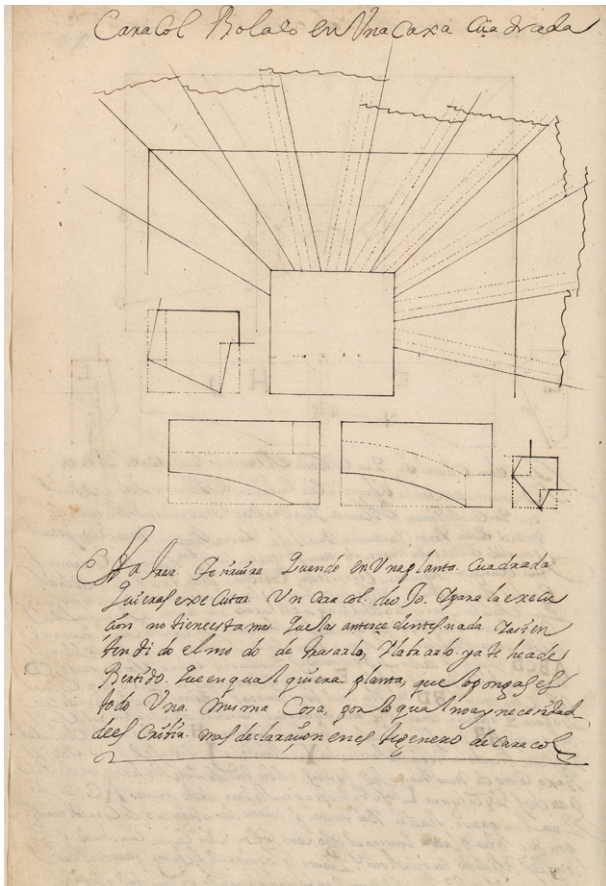 Caracol Bolado en Una Caxa Cuadrada
Esta traza. Quando en Una planta. Cuadrada
quieras executar Un caracol. Y para la execu
cion no tienes tu mas que las antecedentes nada
tendido el modo de trasarlo, Y labrarlo ya te
que en qual quiera. planta, que lo pongas es
todo Una. misma Cosa, por lo qual no ay necesidad
de es Cribir. mas declaraçion en es te genero de Caracol